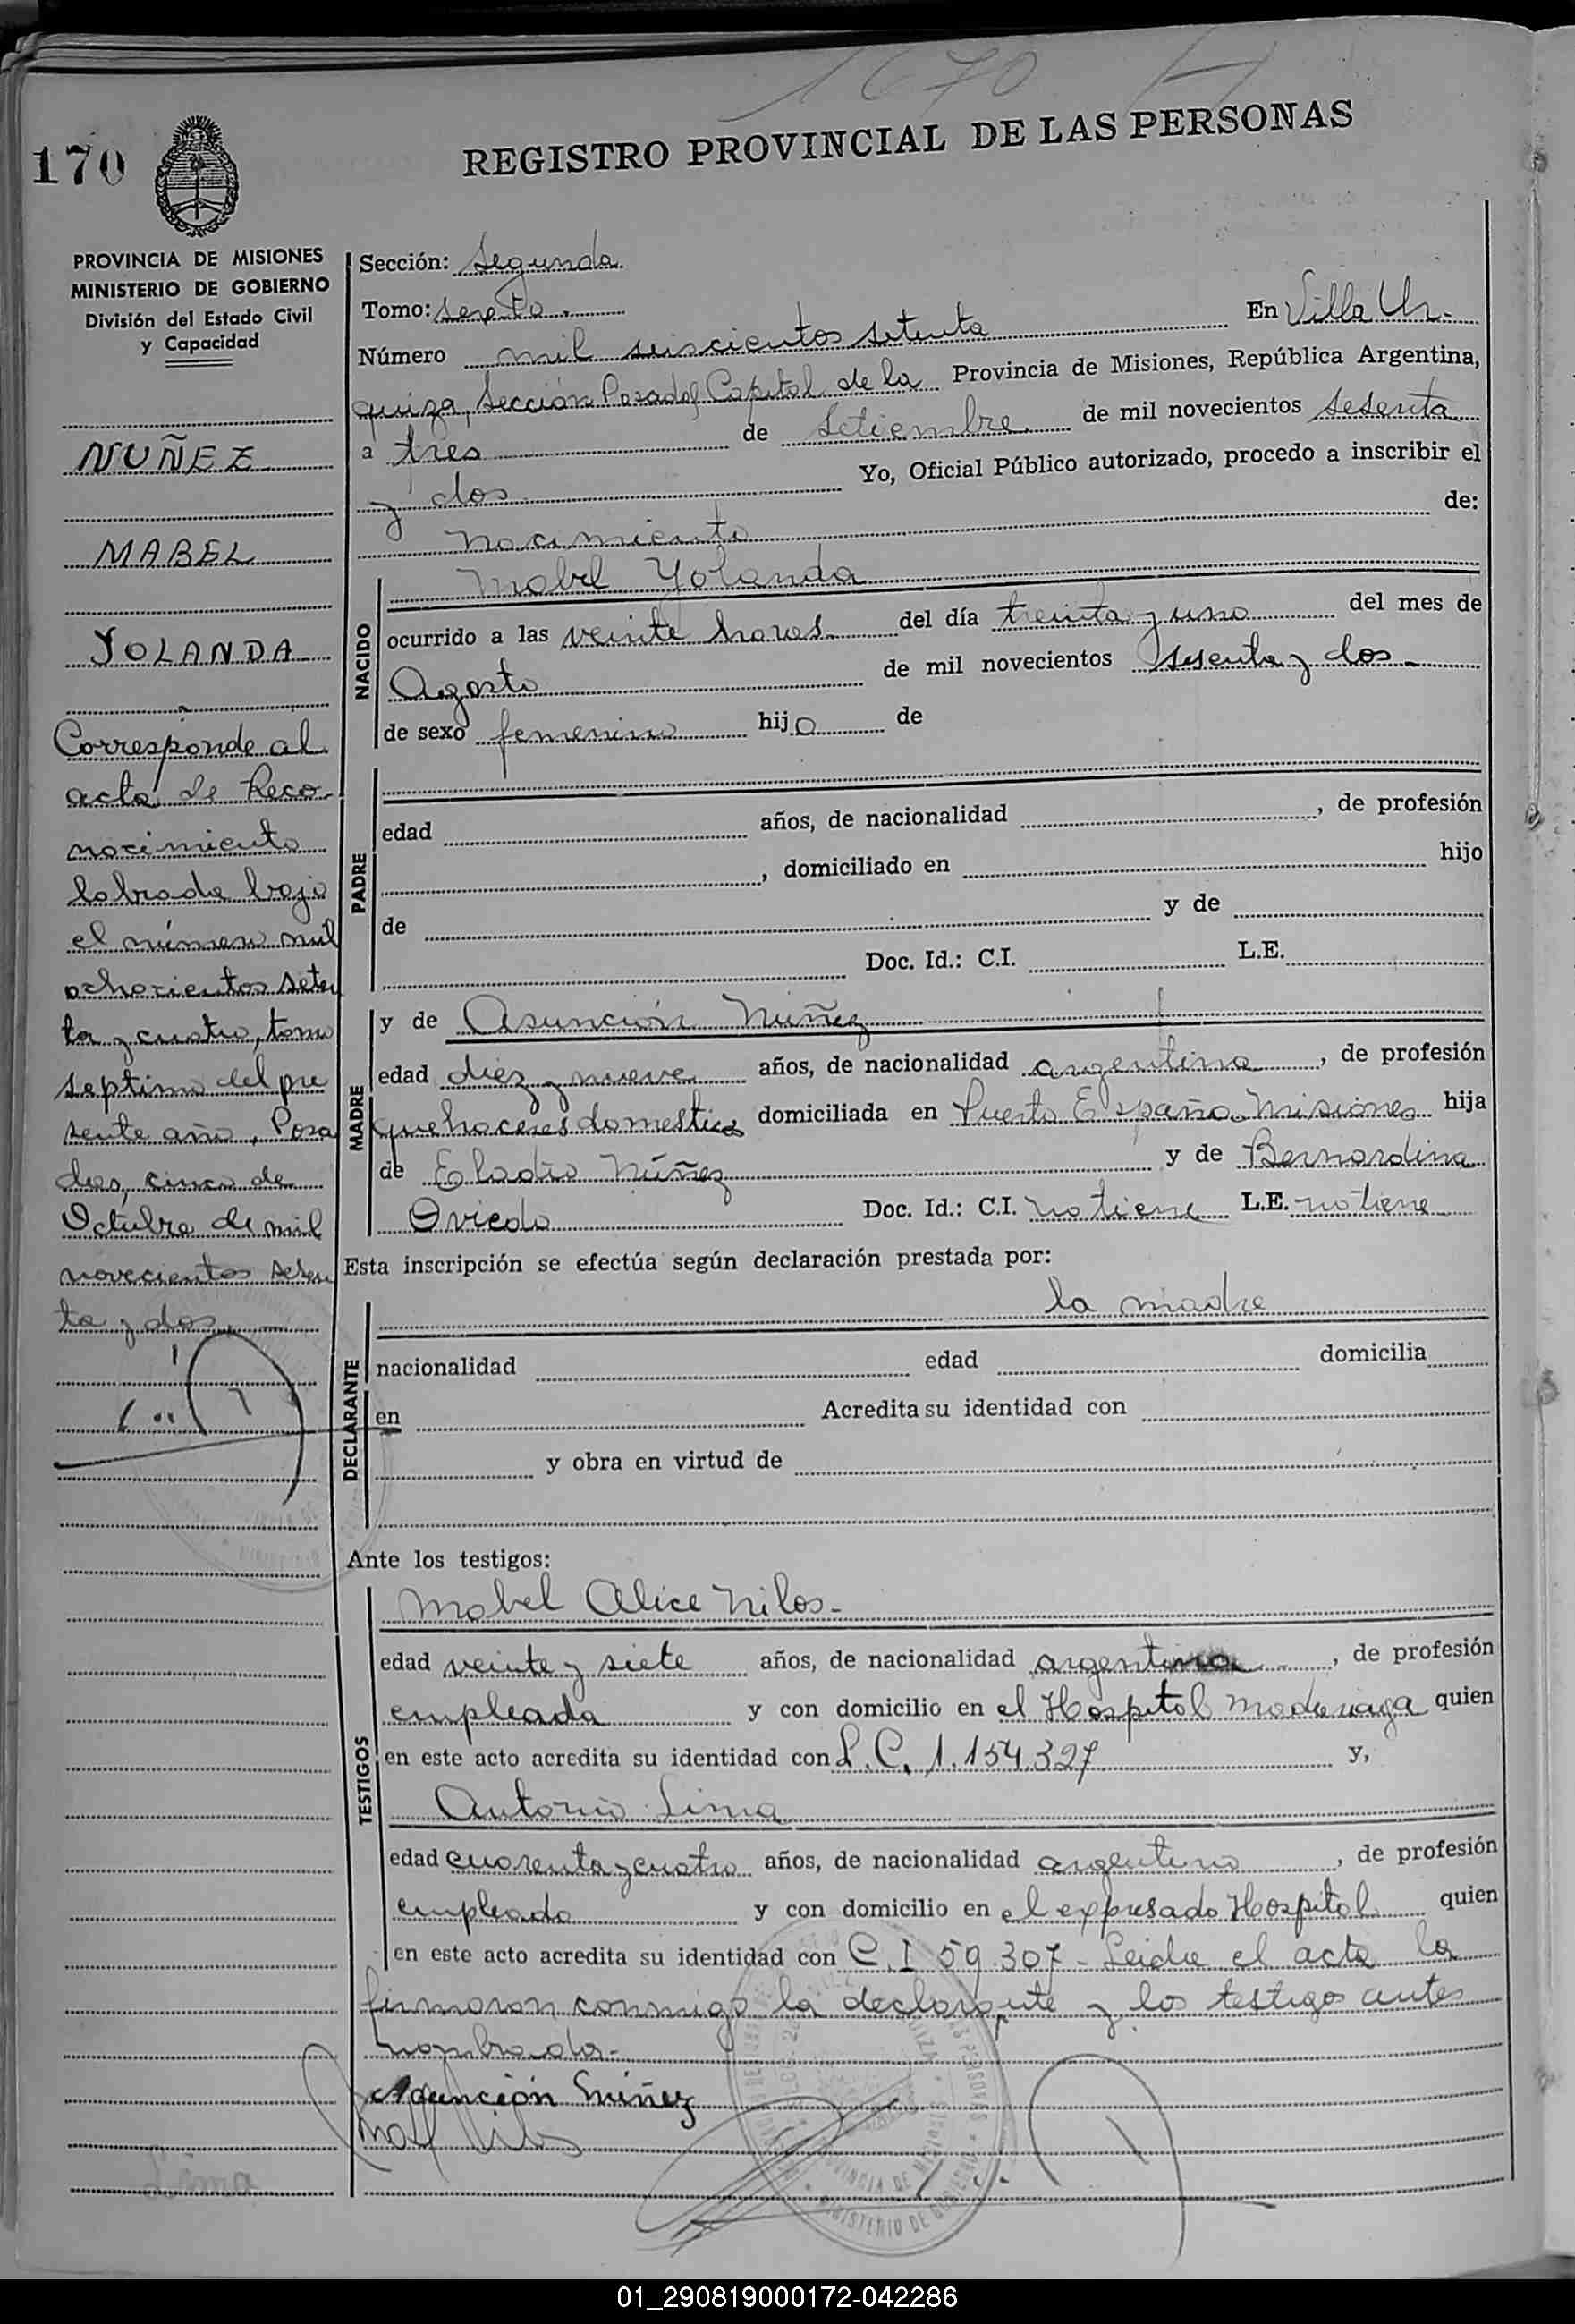 1670
170
REGISTRO PROVINCIAL DE LAS PERSONAS
PROVINCIA DE MISIONES
MINISTERIO DE GOBIERNO
División del Estado Civil
y Capacidad
NUÑEZ
MABEL
YOLANDA
Corresponde al
acta de Reco-
nocimiento
labrada bajo
el número mil
ochocientos seten
ta y cuatro, tomo
septimo del pre
sente año, Posa
das, cinco de
Octubre de mil
novecientos sesen
ta y dos.
Sección: Segunda
Tomo: sexto. En Villa Ur-
Número mil seiscientos setenta
quiza, Sección Posadas Capital de la Provincia de Misiones, República Argentina,
a tres de Setiembre de mil novecientos sesenta
y dos Yo, Oficial Público autorizado, procedo a inscribir el
nacimiento de:
NACIDO
Mabel Yolanda
ocurrido a las veinte horas del día treinta y uno del mes de
Agosto de mil novecientos sesenta y dos-
de sexo femenino hija de
PADRE
edad años, de nacionalidad , de profesión
, domiciliado en hijo
de y de
Doc. Id.: C.I. L.E.
MADRE
y de Asunción Núñez
edad diez y nueve años, de nacionalidad argentina , de profesión
quehaceres domesticos domiciliada en Puerto España Misiones hija
de Eladio Núñez y de Bernardina
Oviedo Doc. Id.: C.I. no tiene L.E. no tiene
Esta inscripción se efectúa según declaración prestada por:
DECLARANTE
la madre
nacionalidad edad domicilia
en Acredita su identidad con
y obra en virtud de
Ante los testigos:
TESTIGOS
Mabel Alice Nilos-
edad veinte y siete años, de nacionalidad argentina , de profesión
empleada y con domicilio en el Hospital Madariaga quien
en este acto acredita su identidad con L.C. 1.154.327 y,
Antonio Lima
edad cuarenta y cuatro años, de nacionalidad argentino , de profesión
empleado y con domicilio en el expresado Hospital quien
en este acto acredita su identidad con C.I 59.307- Leida el acta la
firmaron conmigo la declarante y los testigos antes
nombrados-
Asunción Núñez
01_290819000172-042286